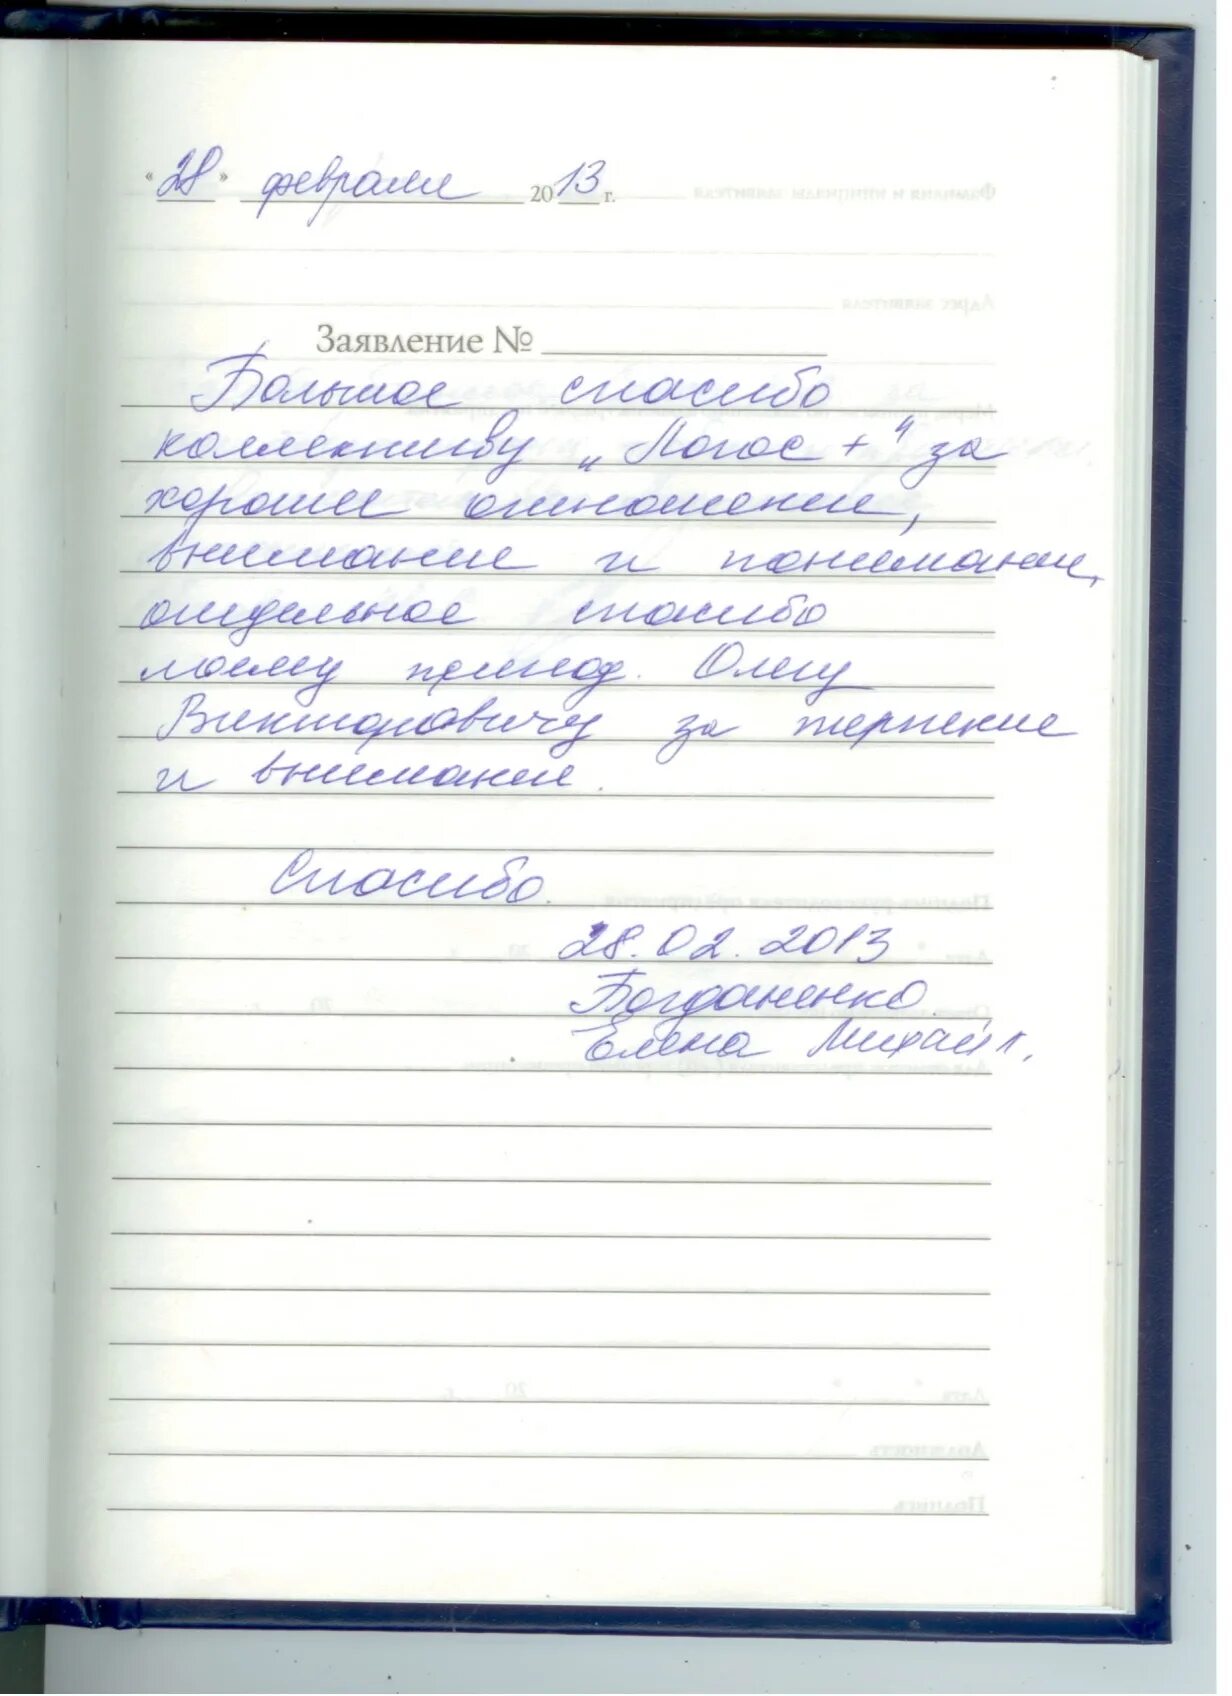 «28» февраля 2013 г.
Заявление №
Большое спасибо
коллективу „Логос +" за
хорошее отношение,
внимание и понимание,
отдельное спасибо
моему препод. Олегу
Викторовичу за терпение
и внимание.
Спасибо.
28.02.2013
Богданенко
Елена Михайл.